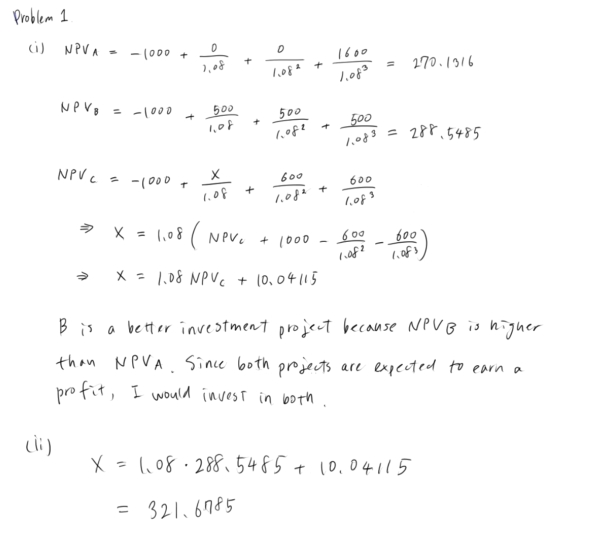 Problem 1
(i) NPV_A = -1000 + 0/1.08 + 0/1.08² + 1600/1.08³ = 270.1316
NPV_B = -1000 + 500/1.08 + 500/1.08² + 500/1.08³ = 288.5485
NPV_C = -1000 + X/1.08 + 600/1.08² + 600/1.08³
⇒ X = 1.08 ( NPV_C + 1000 - 600/1.08² - 600/1.08³ )
⇒ X = 1.08 NPV_C + 10.04115
B is a better investment project because NPV_B is higher
than NPV_A. Since both projects are expected to earn a
profit, I would invest in both.
(ii)
X = 1.08 · 288.5485 + 10.04115
= 321.6785